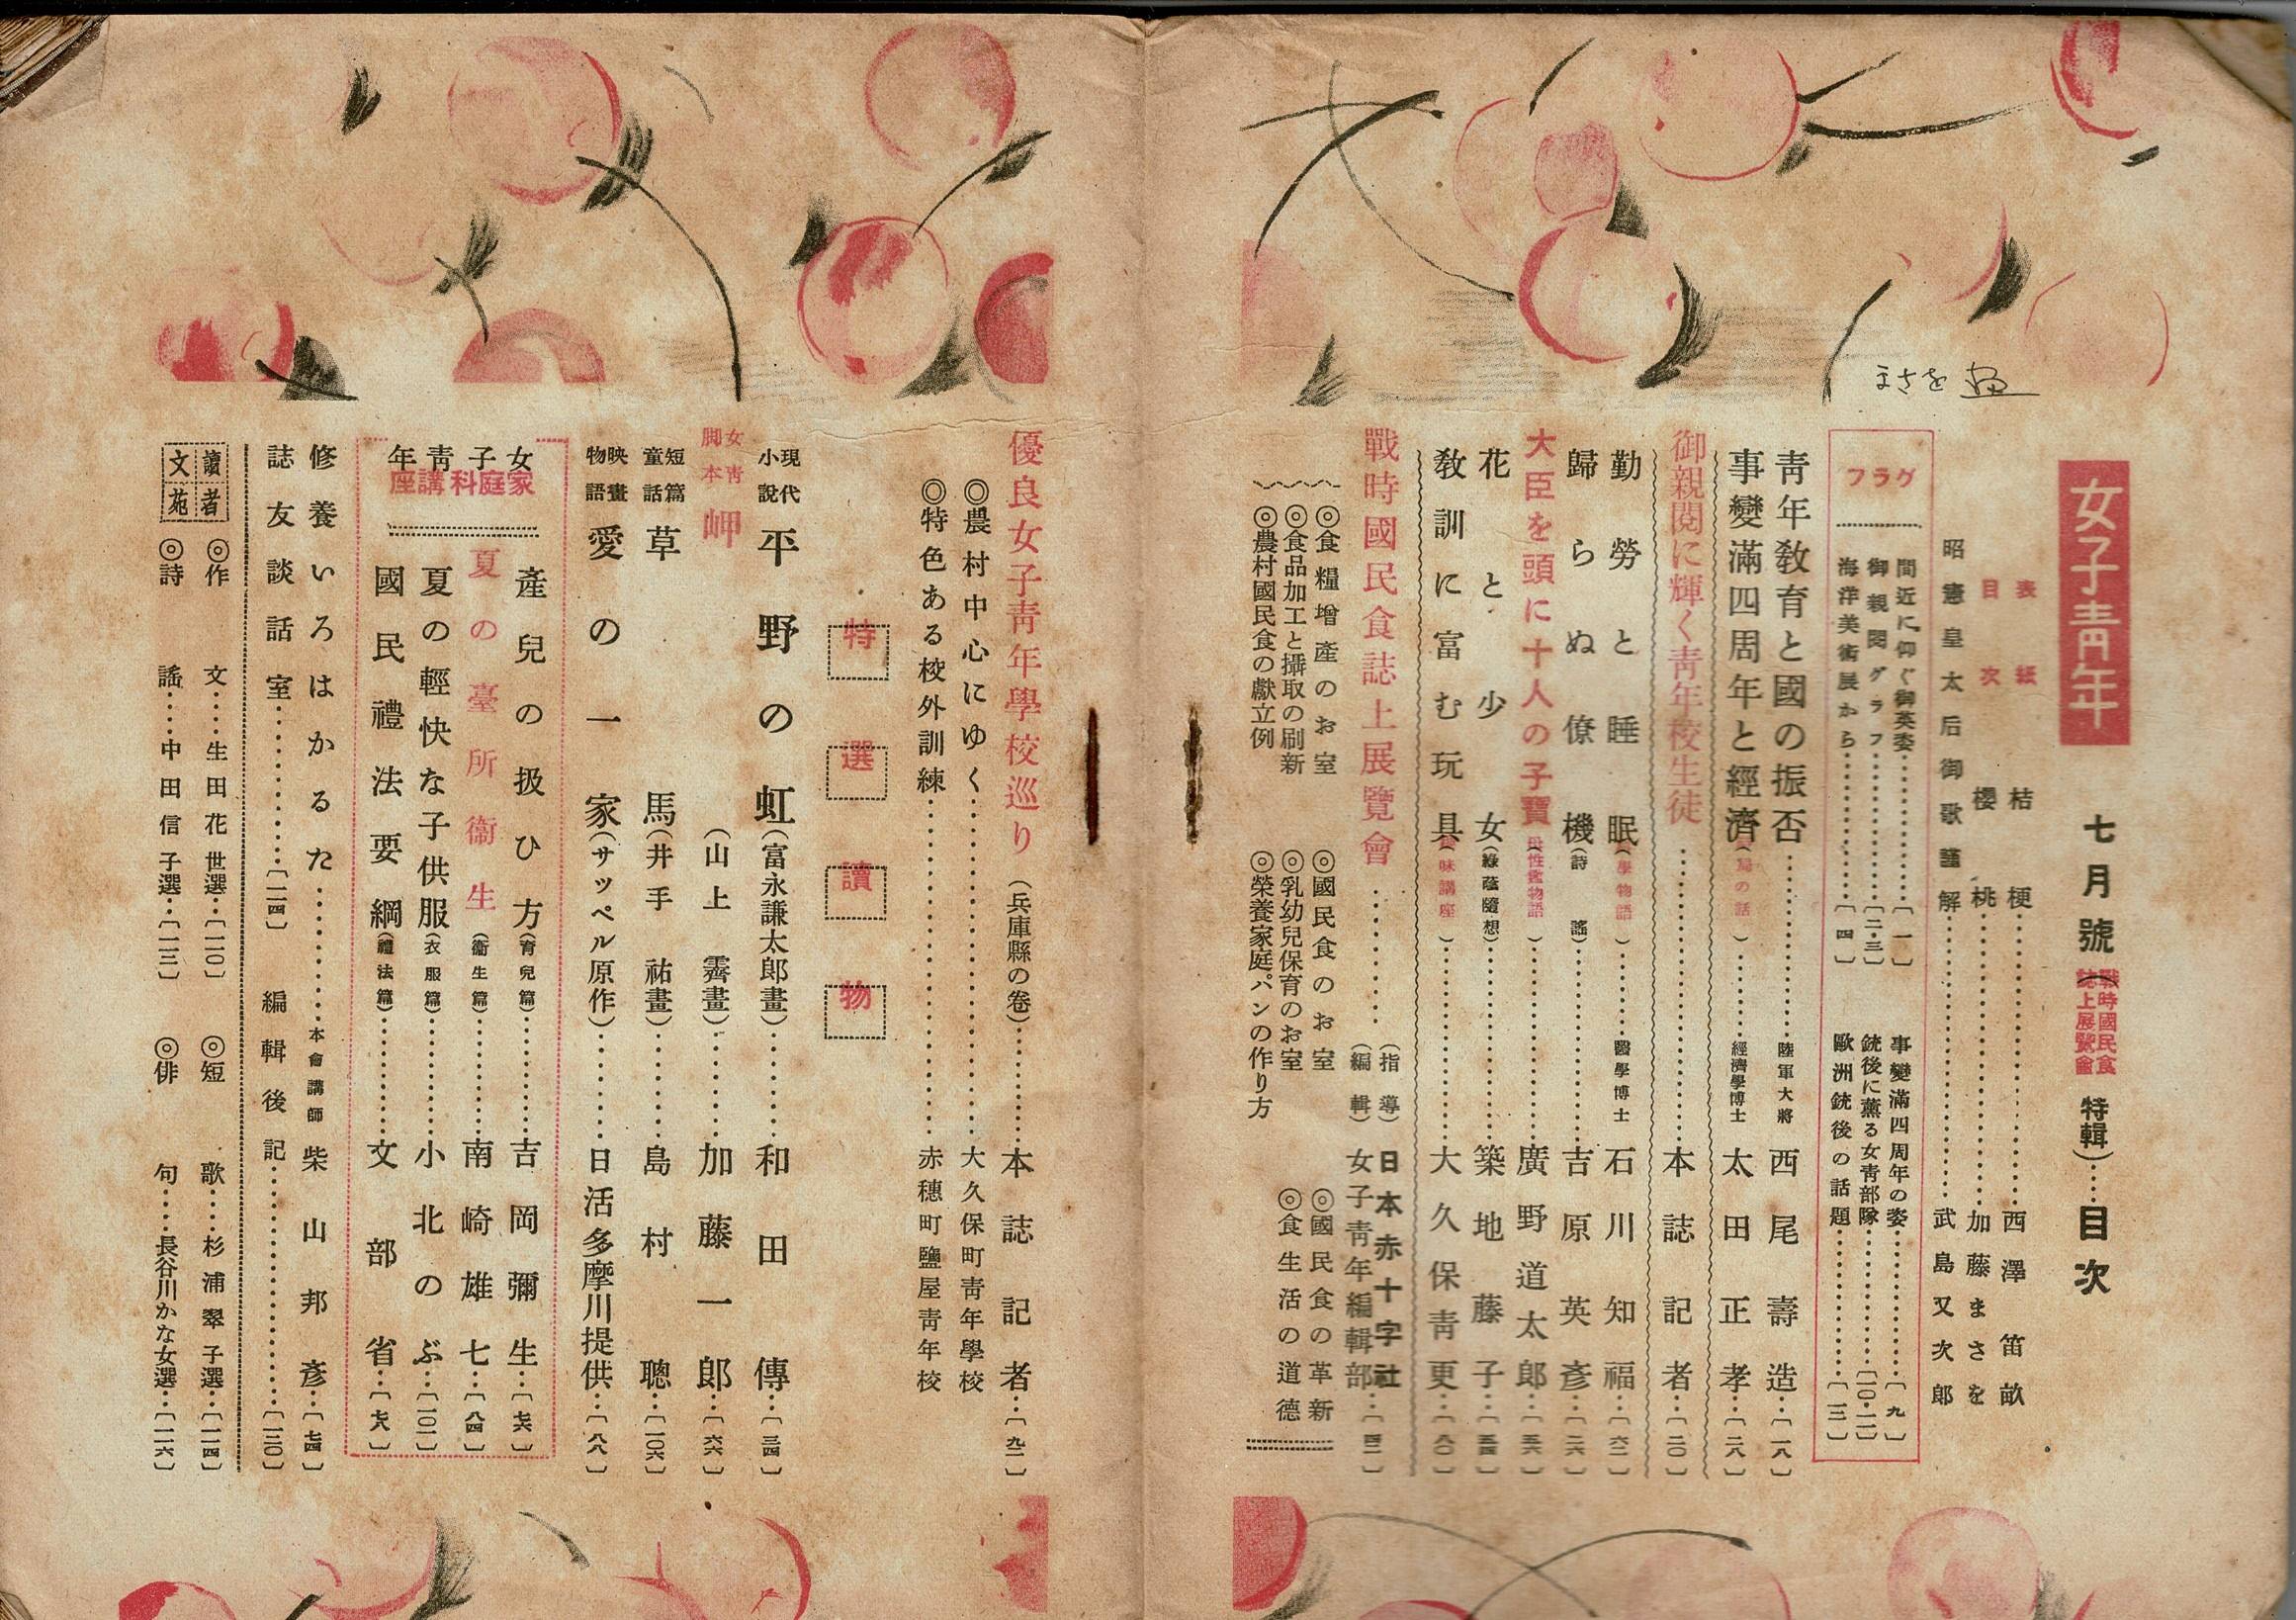 女子青年 七月號(戰時國民食誌上展覽會 特輯)……目次
まさを 画
表紙 桔梗……西澤笛畝
目次 櫻桃……加藤まさを
昭憲皇太后御歌謹解……武島又次郎
グラフ
間近に仰ぐ御英姿……〔一〕
御親閲グラフ……〔二・三〕
海洋美術展から……〔四〕
事變滿四周年の姿……〔九〕
銃後に薫る女青部隊……〔一〇・一一〕
歐洲銃後の話題……〔一三〕
靑年敎育と國の振否……陸軍大將 西尾壽造…〔一八〕
事變滿四周年と經濟(の話)……經濟學博士 太田正孝…〔二八〕
御親閲に輝く靑年校生徒……本誌記者…〔二〇〕
勤勞と睡眠(學物語)……醫學博士 石川知福…〔六二〕
歸らぬ僚機(詩謠)……吉原英彥…〔二六〕
大臣を頭に十人の子寶(母性愛物語)……廣野道太郎…〔五六〕
花と少女(綠蔭隨想)……築地藤子…〔五四〕
敎訓に富む玩具(趣味講座)……大久保靑更…〔八〇〕
戰時國民食誌上展覽會……(指導)日本赤十字社
(編輯)女子靑年編輯部…〔四二〕
◎食糧增產のお室 ◎國民食のお室 ◎國民食の革新
◎食品加工と攝取の刷新 ◎乳幼兒保育のお室 ◎食生活の道德
◎農村國民食の獻立例 ◎榮養家庭パンの作り方
優良女子靑年學校巡り(兵庫縣の卷)……本誌記者…〔九二〕
◎農村中心にゆく……大久保町靑年學校
◎特色ある校外訓練……赤穗町鹽屋靑年校
特選讀物
現代小說 平野の虹(富永謙太郎畫)……和田傳…〔三四〕
女靑脚本 岬(山上霽畫)……加藤一郎…〔六六〕
短篇童話 草(井手祐畫)……島村聰…〔一〇六〕
映畫物語 愛の一家(サッペル原作)……日活多摩川提供…〔八八〕
女子靑年
家庭科講座
產兒の扱ひ方(育兒篇)……吉岡彌生…〔七六〕
夏の臺所衞生(衞生篇)……南崎雄七…〔八四〕
夏の輕快な子供服(衣服篇)……小北のぶ…〔一〇二〕
國民禮法要綱(禮法篇)……文部省…〔七八〕
修養いろはかるた……本會講師 柴山邦彥…〔七四〕
誌友談話室……〔一二四〕 編輯後記……〔一三〇〕
讀者文苑
◎作文……生田花世選…〔一一〇〕 ◎短歌……杉浦翠子選…〔一一四〕
◎詩謠……中田信子選…〔一一三〕 ◎俳句……長谷川かな女選…〔一一六〕